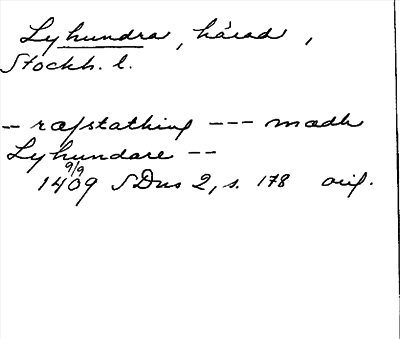 Lyhundra, härad,
Stockh. l.
- ræfstathing --- mædh
Lyhundare --
9/9
1409 SDns 2, s. 178 orig.